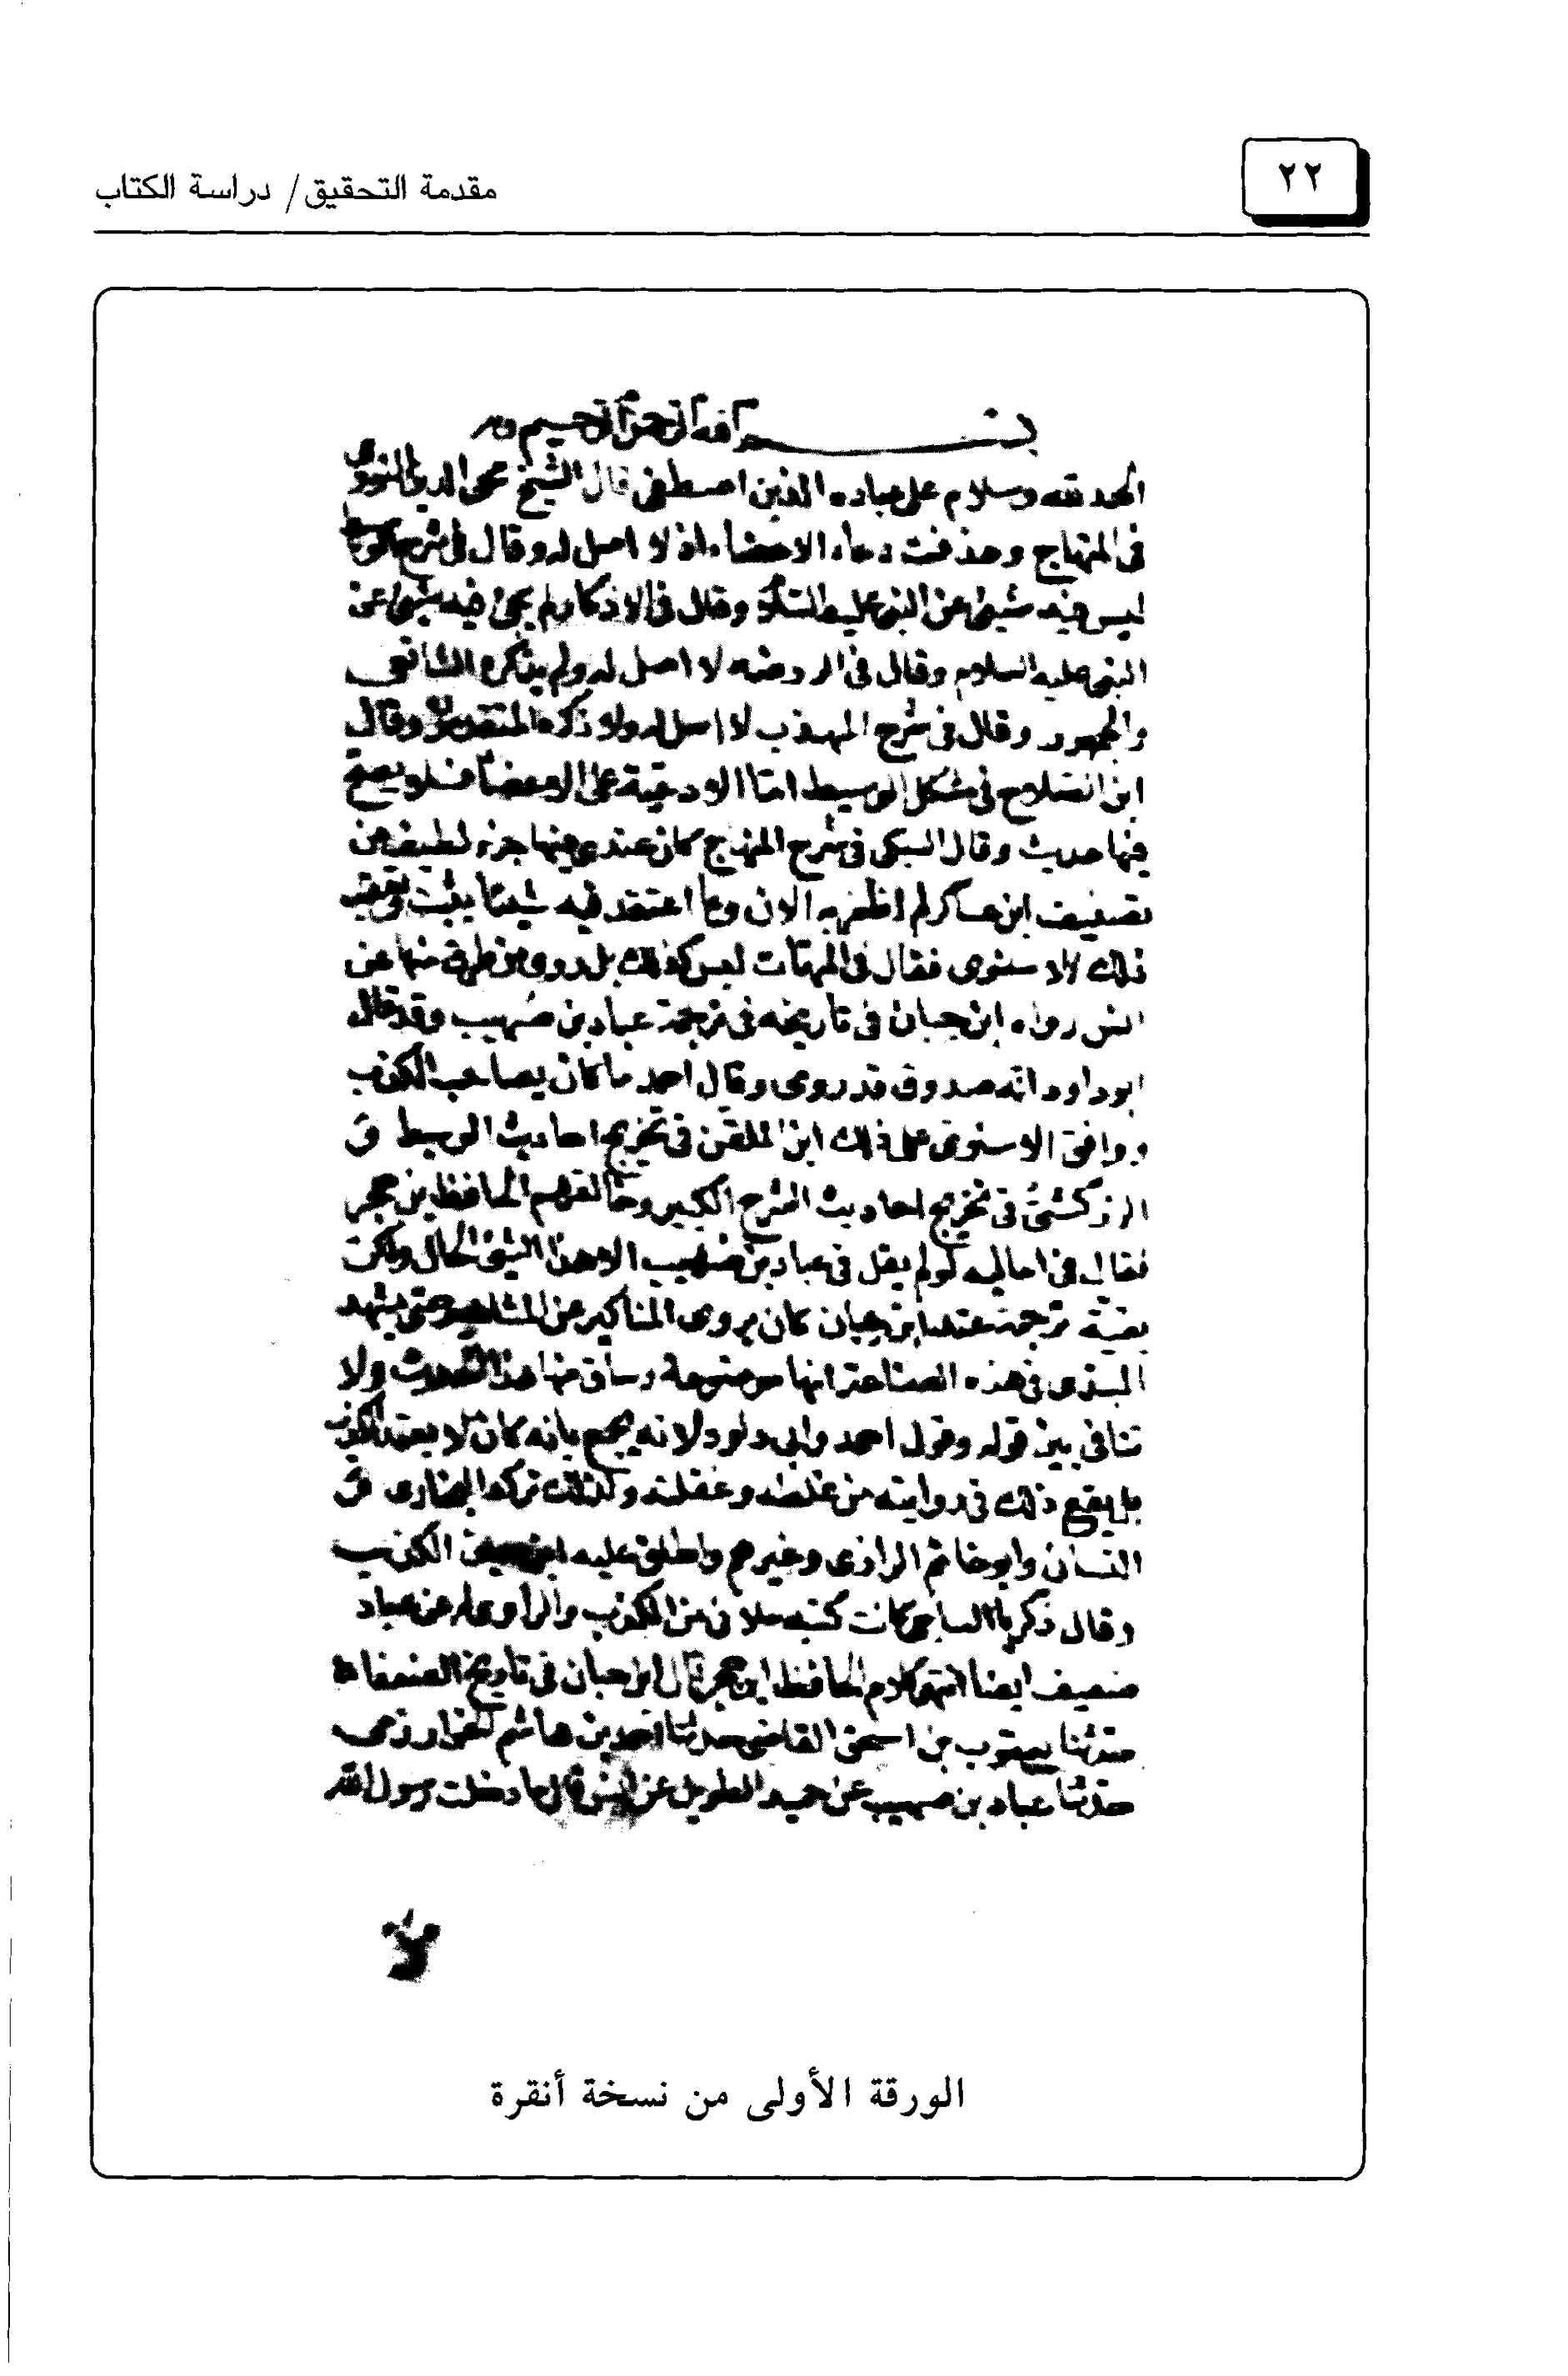 ٢٢
مقدمة التحقيق/ دراسة الكتاب
بسم الله الرحمن الرحيم
الحمد لله وسلام على عباده الذين اصطفى قال الشيخ محى الدين النووى
فى المنهاج وحذفت دعاء الاعضاء اذ لا اصل له وقال فى شرح
ليس فيه شيئ عن النبى عليه وقال فى الاذكار لم يجئ فيه شيئ عن
النبى عليه السلام وقال فى الروضه لا اصل له ولم يذكره الشافعى
والجمهور وقال فى شرح المهذب لا اصل له ولا ذكره المتقدمون وقال
ابن الصلاح فى مشكل الوسيط امّا الادعية على الاعضا فلا يصح
فيها حديث وقال السبكى فى شرح المنهاج كان عندى فيها جزء لطيف من
تصنيف ابن عساكر لم اظفر به الان وما اعتقد فيه شيئا يثبت وتعقب
ذلك الاسنوى فقال فى المهمّات ليس كذلك بل روى من طرق منها عن
انس رواه ابن حبان فى تاريخه فى ترجمة عباد بن صُهيب وقد قال
ابوداود انّه صدوق قدرى وقال احمد ما كان يصاحب الكذب
ووافق الاسنوى على ذلك ابن الملقن فى تخريج احاديث الوسيط و
الزركشىّ فى تخريج احاديث الشرح الكبير وخالفهم الحافظ بن حجر
فقال فى اماليه لو لم يقل فى عباد بن صُهيب الا هذا لمشى الحال ولكن
بقية ترجمته عند ابن حبان كان يروى المناكير عن المشاهير حتى يشهد
المبتدى فى هذه الصناعة انها موضوعة وساق منها هذا الحديث ولا
تنافى بين قوله وقول احمد وابى داود لانه يجمع بانه كان لا يعتمد الكذب
بل يقع ذلك فى روايته من غلطه وغفلته وكذلك تركه البخارى و
النسائ وابو حاتم الرازى وغيرهم واطلق عليه ابن معين الكذب
وقال ذكريا الساجى كانت كتبه ملأى من الكذب والراوى له عن عباد
ضعيف ايضا انتهى كلام الحافظ ابن حجر قال ابن حبان فى تاريخ الضعفاء
حدثنا يعقوب بن اسحق القاضى حدثنا احمد بن هاشم الخوارزمى
حدثنا عباد بن صهيب عن حميد الطويل عن انس قال دخلت رسول الله
الورقة الأولى من نسخة أنقرة